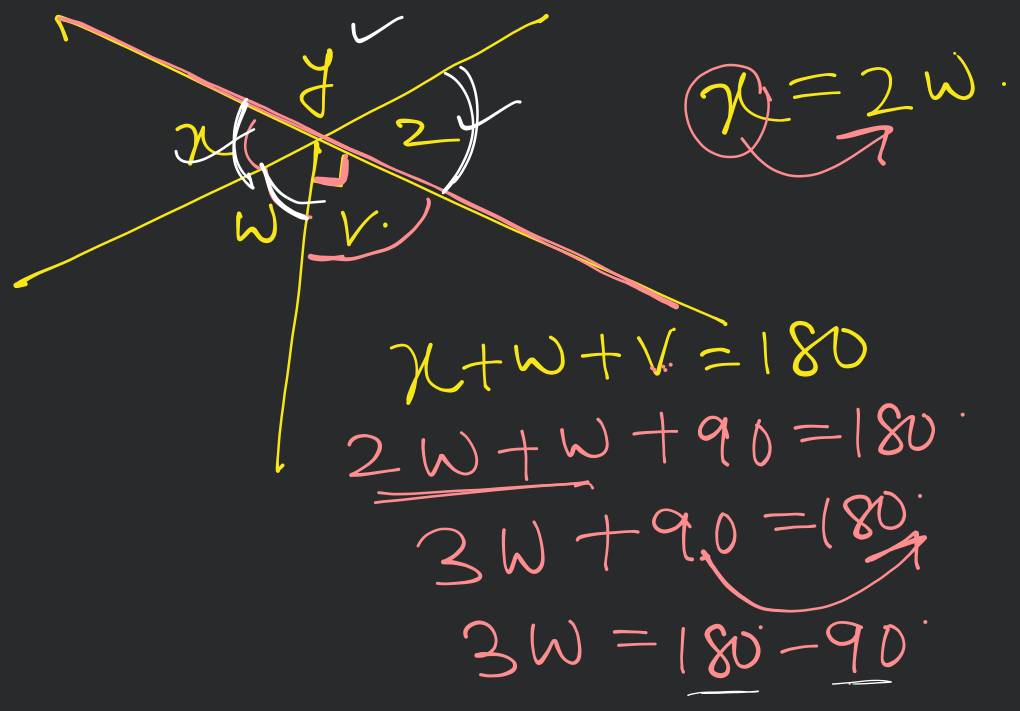 y
x = 2w
x
z
w
v
x+w+v=180
2w+w+90=180
3w+90=180
3w=180-90